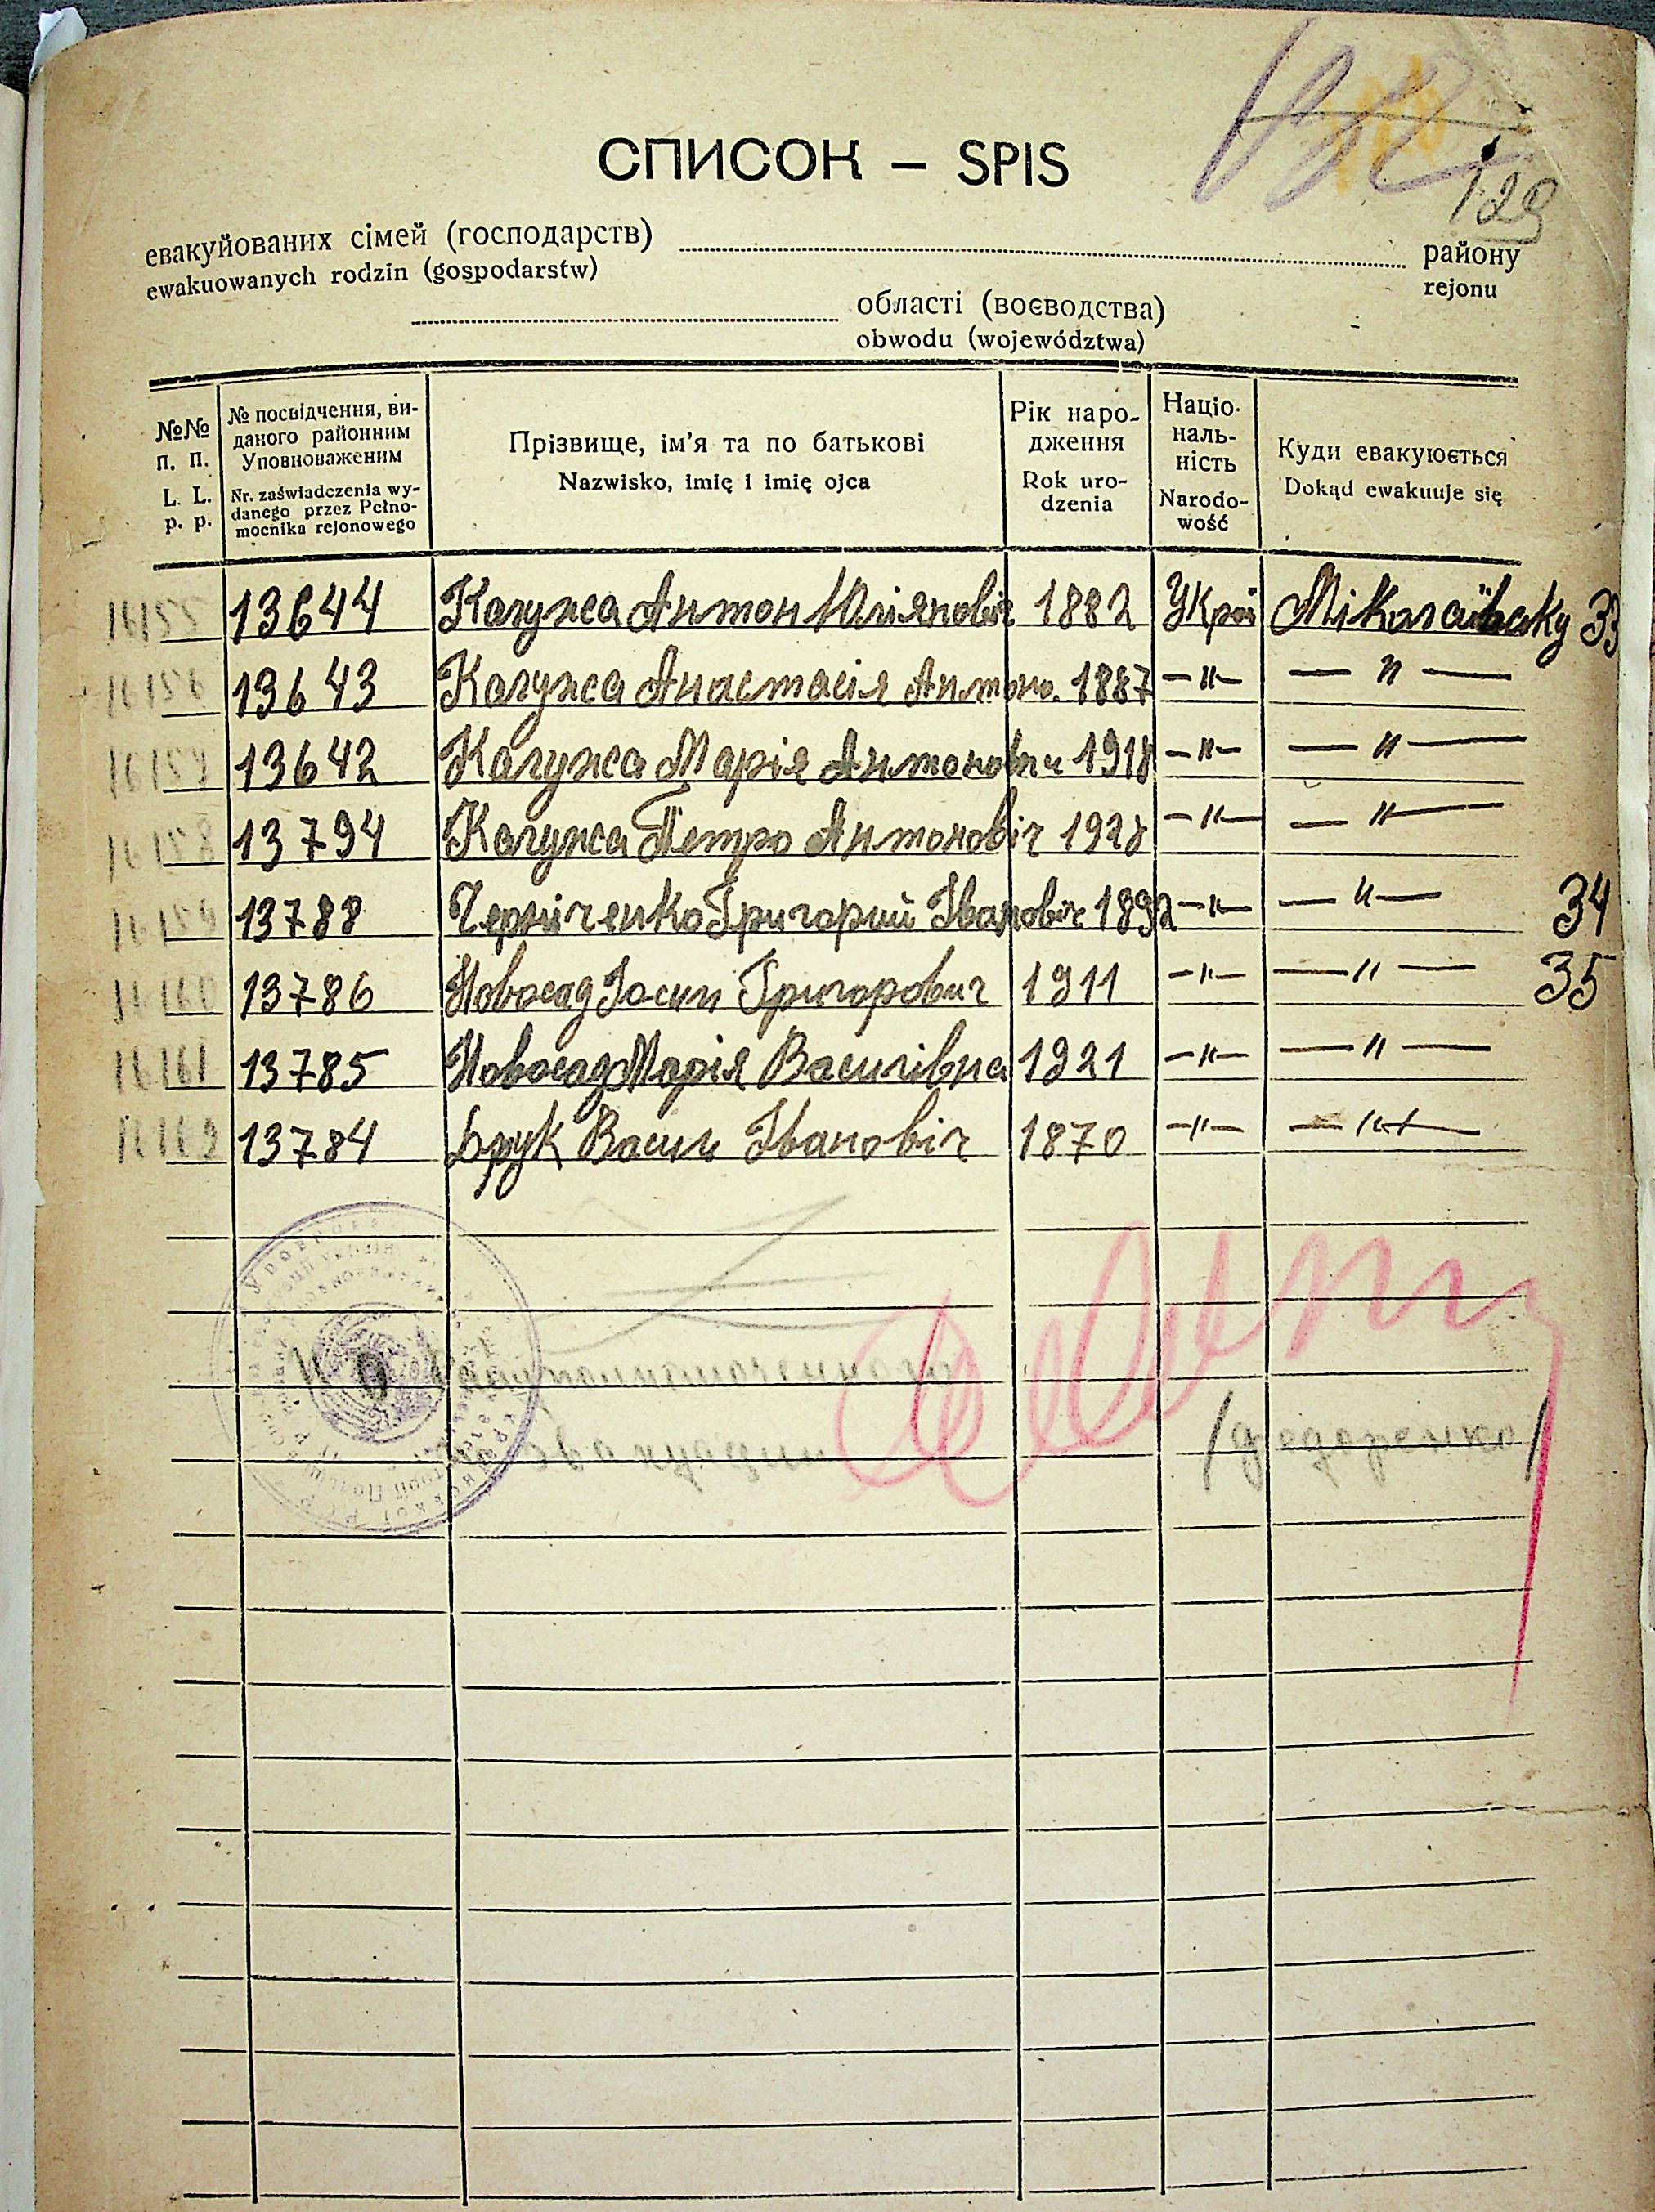 129
СПИСОК – SPIS
евакуйованих сімей (господарств) району
ewakuowanych rodzin (gospodarstw) rejonu
області (воєводства)
obwodu (województwa)
№№ п. п. L. L. p. p.
№ посвідчення, виданого районним Уповноваженим Nr. zaświadczenia wydanego przez Pełnomocnika rejonowego
Прізвище, ім'я та по батькові Nazwisko, imię i imię ojca
Рік народження Rok urodzenia
Національність Narodowość
Куди евакуюється Dokąd ewakuuje się
16155 13644 Калужа Антон 1882 Укра Міколаївську 33
16156 13643 Калужа Анастасія Антоно. 1887 —"— —"—
16157 13642 Калужа Марія 1918 —"— —"—
16158 13794 Калужа Петро Антоновіч 1928 —"— —"—
16159 13788 Григорий Івановіч 1892 —"— —"— 34
16160 13786 Новосад Іосип Григорович 1911 —"— —"— 35
16161 13785 Новосад Марія Василівна 1921 —"— —"—
16162 13784 Брук Василь Івановіч 1870 —"— —"—
евакуации /Федоренко/